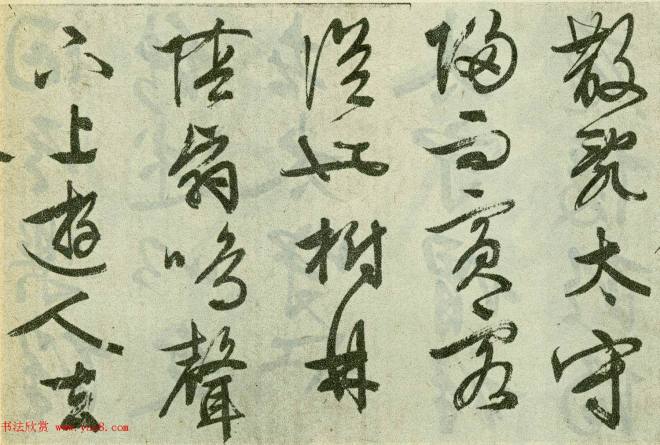 散亂太守
歸而賓客
從也樹林
陰翳鳴聲
下上遊人去
书法欣赏